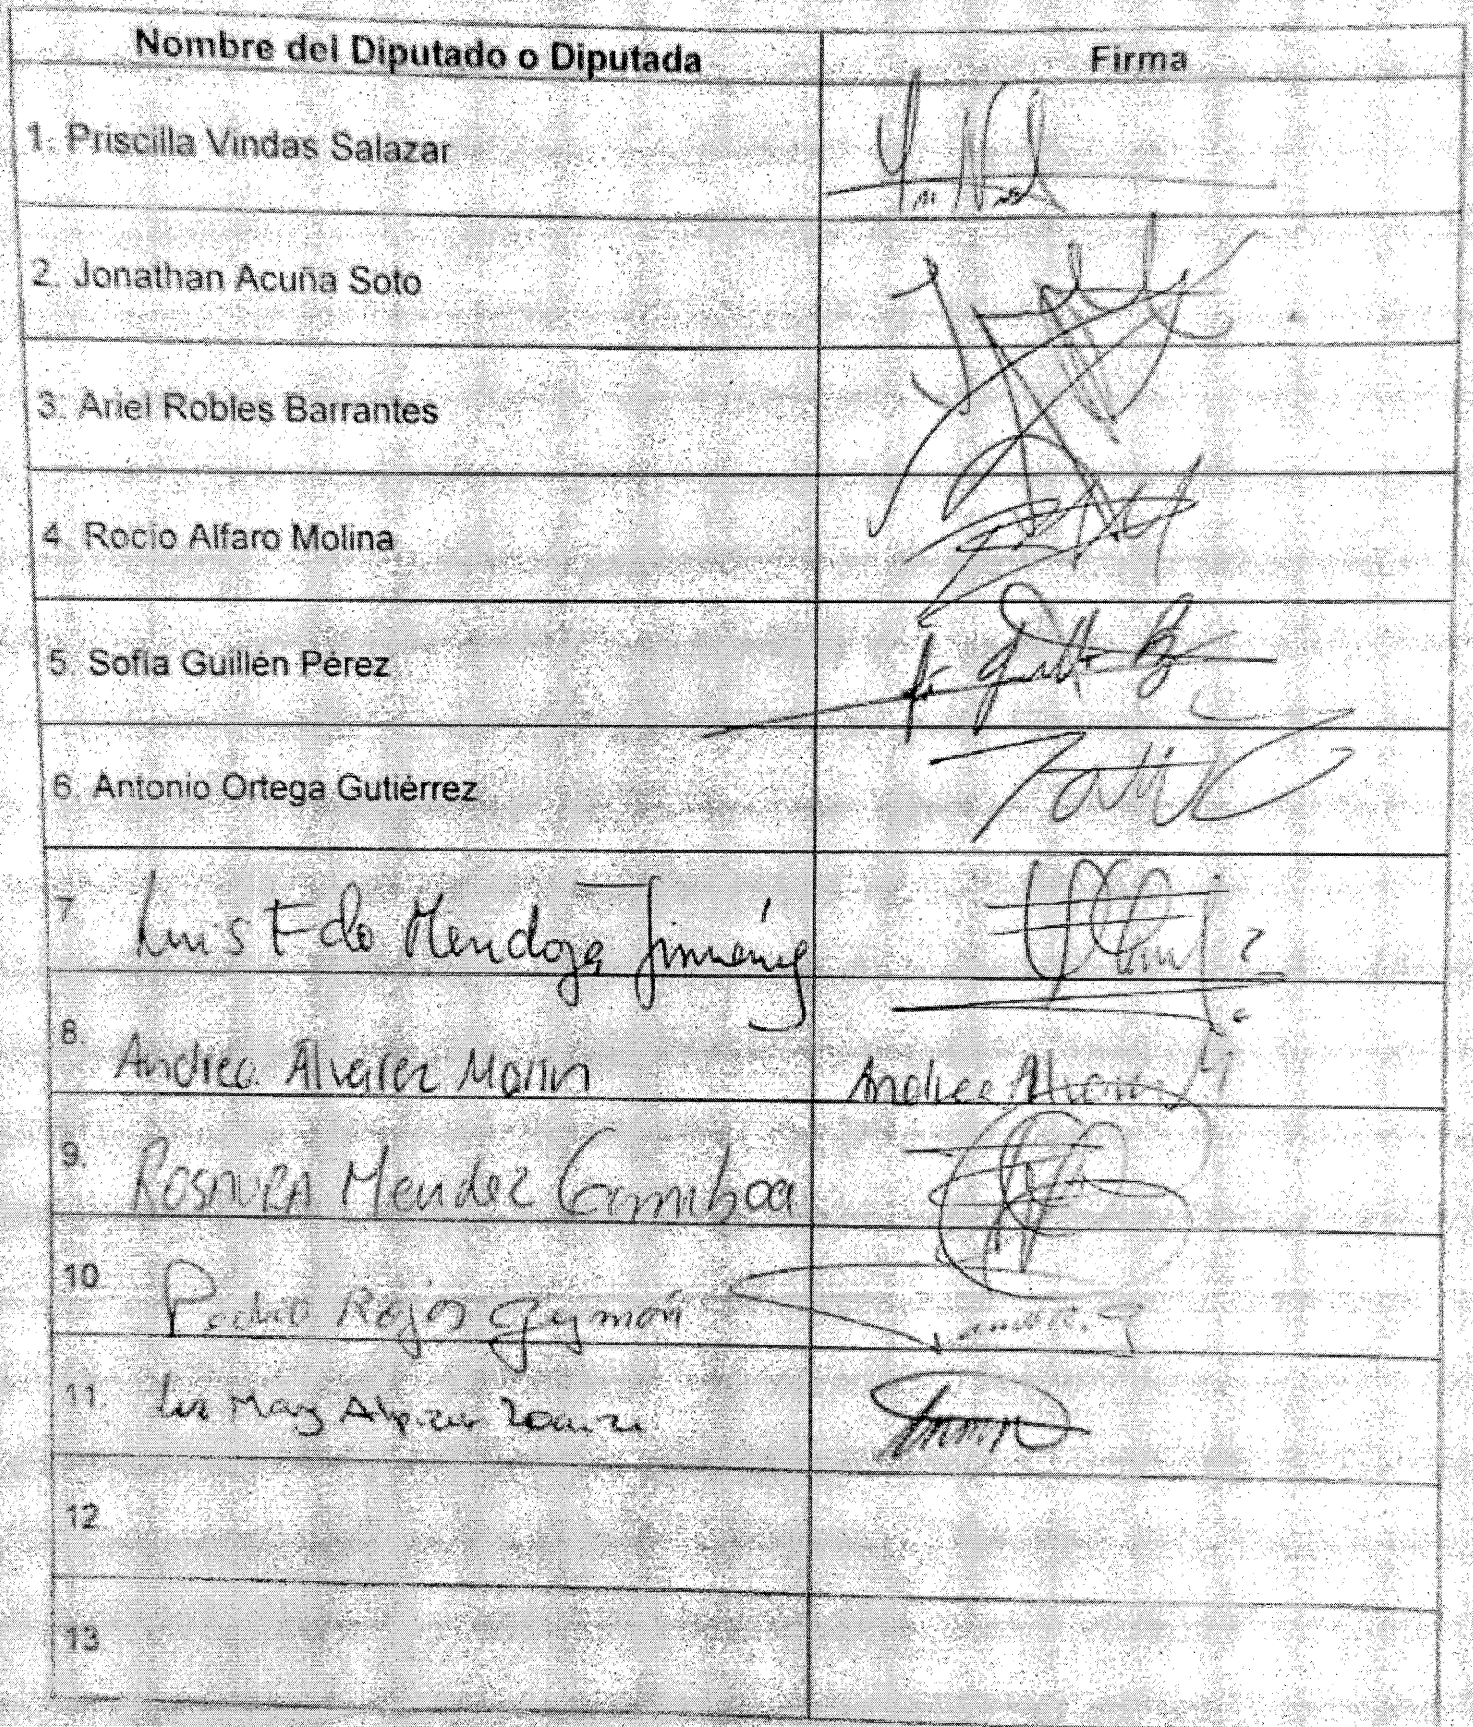 Nombre del Diputado o Diputada Firma
1. Priscilla Vindas Salazar
2. Jonathan Acuña Soto
3. Ariel Robles Barrantes
4. Rocío Alfaro Molina
5. Sofía Guillén Pérez
6. Antonio Ortega Gutiérrez
7. Luis Fdo Mendoza Jiménez
8. Andrea Álvarez Marín Andrea Álvarez M
9. ROSAURA Mendez Gamboa
10 Pedro Rojas Guzmán
11. Luz Mary Alpízar Loaiza
12
13